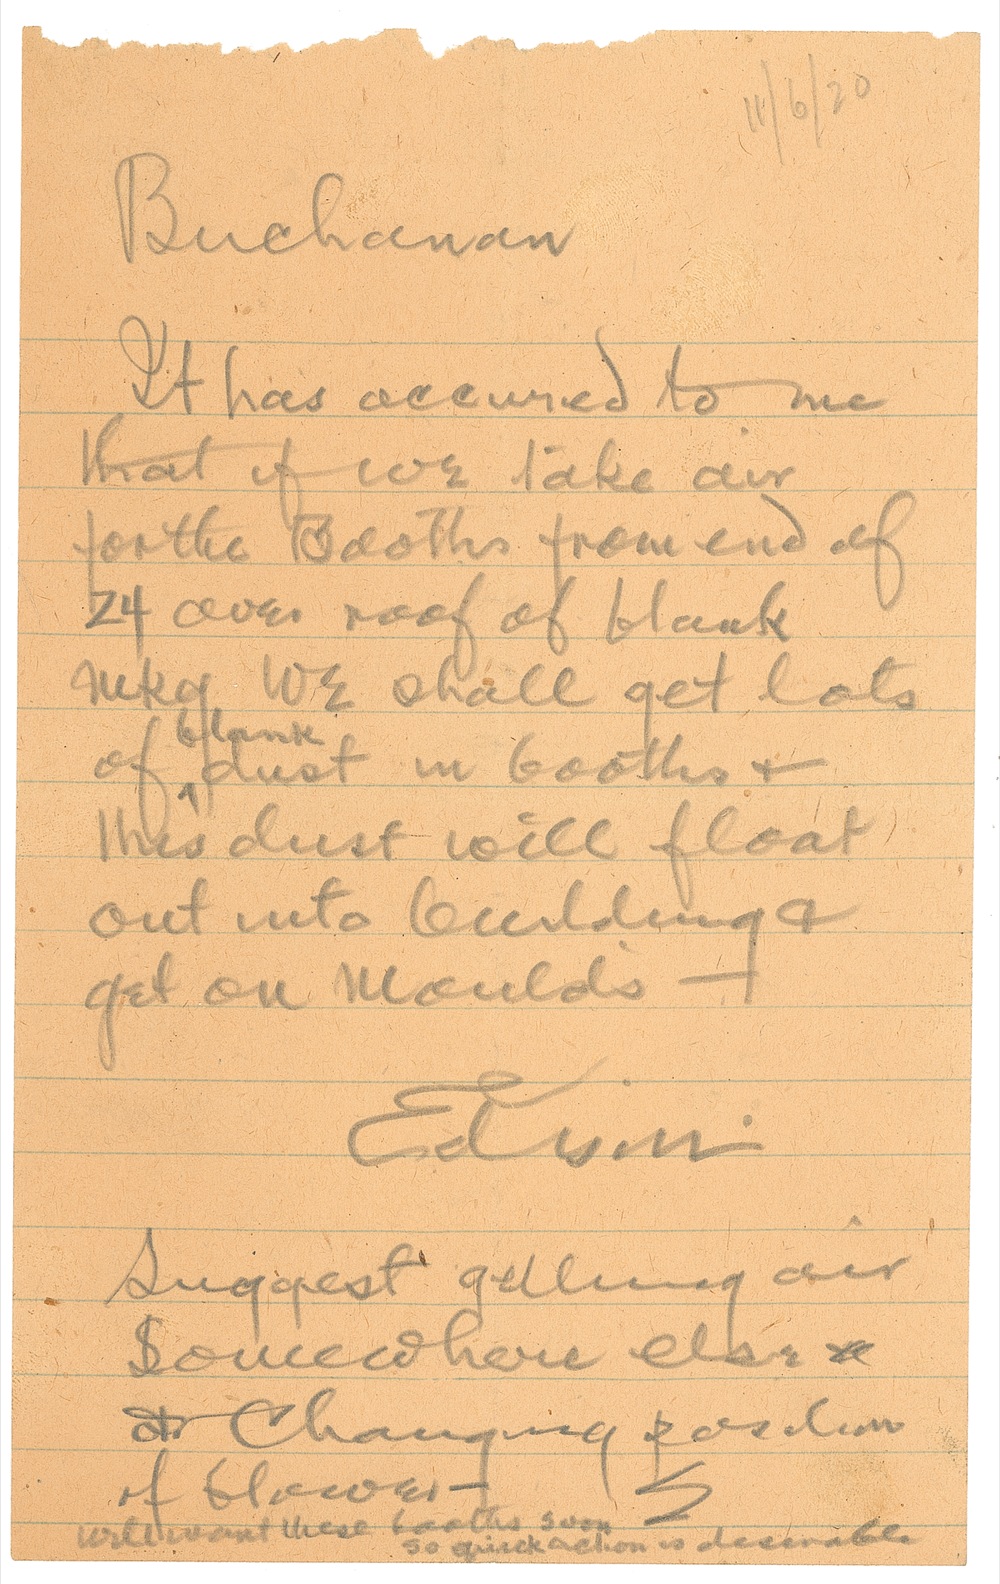 11/6/20
Buchanan
It has occured to me
that if we take air
for the Booths from end of
24 over roof of blank
mkg We shall get lots
of blank dust in booths &
this dust will float
out into building &
get on Moulds —
Edison
Suggest getting air
Somewhere else
or Changing position
of blower —
will want these booths soon
so quick action is desirable